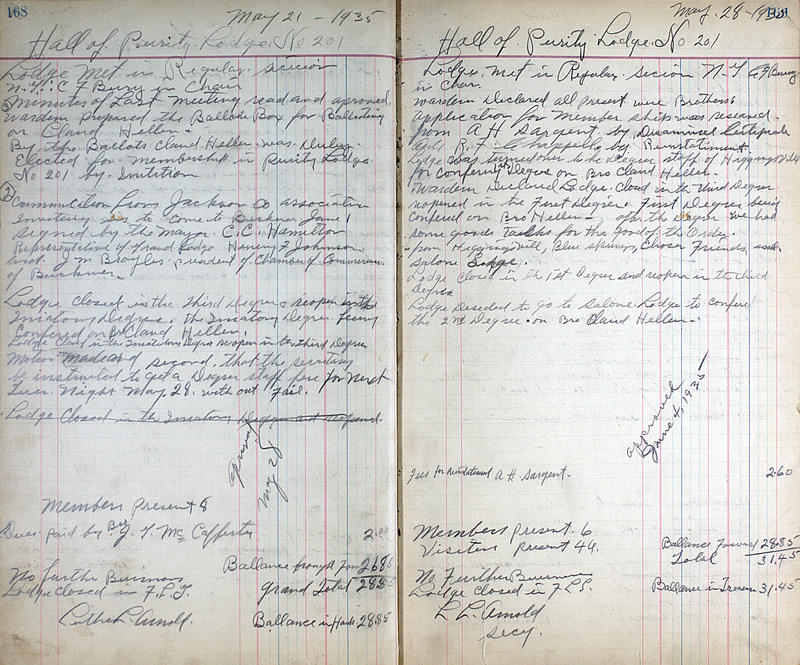 168
May 21 - 1935
Hall of Purity Lodge No 201
Lodge Met in Regular secion
N.G. C F Burry in Chair
Minutes of Last meeting read and aproved
Wardem Prepared the Ballots Box for Balloting
on Claud Heller.
By the Ballots Claud Heller was Duley
Elected for Membership in Purity Lodge
No 201 by Initition
Commuiction from Jackson Co association
Inviting us to come to Buckner June 1
Signed by the Mayor C.C. Hamilton
Representitive of Grand Lodge Henry F Johnson
and J M Broyles president of Chamber of Commerce
of Buckner
Lodge Closed in the Third Degree & reopen in the
Iniatory Degree. The Iniatory Degree being
Confered on Bro Claud Heller.
Lodge Closd in the Iniatory Degree reopen in the third Degree
Motion Made and second, that the secretary
be instructed to get a Degree staff here for next
Tues. Night May 28. with out fail.
Lodge Closed in the Iniatory Degree and reopened.
May 28
Members Present 8
Dues paid by Bro J. T. McCafferty 2.00
Ballance brought forw 26.85
No further Buisness
Grand Total 28.85
Lodge Closed in F.L.T.
Luther L. Arnold.
Ballance in Hand 28.85
May. 28 - 1935
169
Hall of Purity Lodge. No 201
Lodge. Met in Regular. Secion N.G. C F Burry
in Chair.
Wardem Declared all present were Brothers
Application for Member ship was received
from A H Sargent by Dismissed Certificate
and R. F. by Reinstatiment.
Lodge was turned over to the Degree staff of Higginsville
for confering 1st Degree on Bro Claud Heller.
Wardem Declared Lodge. Cloud in the third Degree
reopened in the First Degree. First Degree being
Confered on Bro Heller. after the Degree we had
some goods Talks for the good of the Order.
from Higginsvill, Blue springs, Chosen Friends, and
Salone Lodge.
Lodge Closed in the 1st Degree and reopen in the third
Degree
Lodge Deseded to go to Salone Lodge to Confere
the 2nd Degree. on Bro Claud Heller.
approved
June 4, 1935
Fees for Reinstatement A H Sargent. 2.60
Members Present. 6
Visiters Present 44.
Ballance Forward 28.85
Total 31.45
No Further Buisness
Lodge Closed in F.L.T.
Ballance in Treasure 31.45
L L Arnold
Secy.